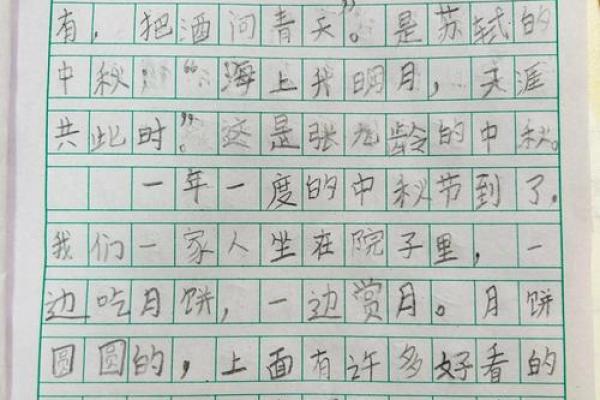 有，把酒问青天”。是苏轼的
中秋；“海上升明月，天涯
共此时”。这是张九龄的中秋。
一年一度的中秋节到了，
我们一家人坐在院子里，一
边吃月饼，一边赏月。月饼
圆圆的，上面有许多好看的